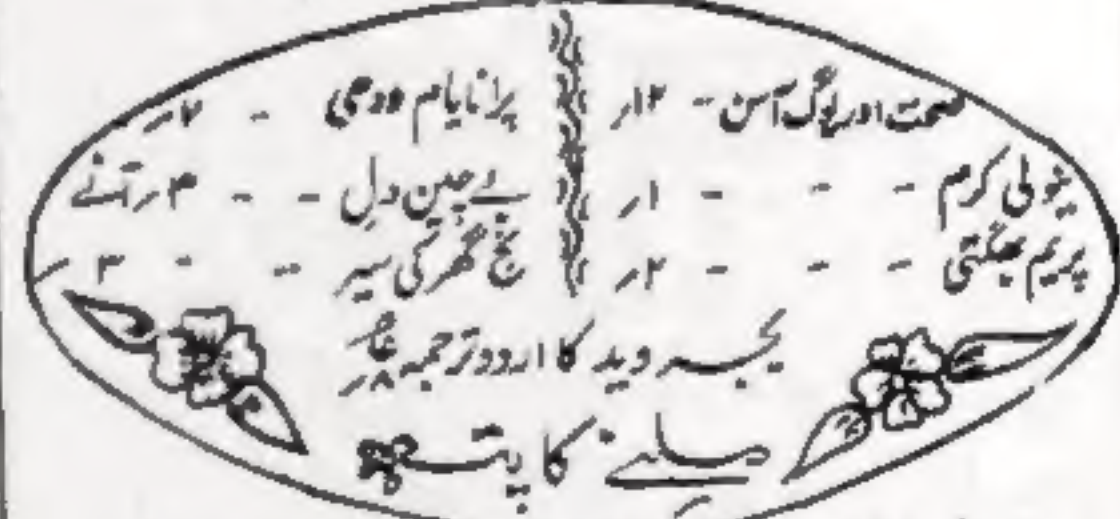 صحت اور یوگ آسن - ۱۲ر
نیولی کرم - - - ۱ر
پریم بھگتی - - - ۲ر
پرانایام ودھی - ۲ر
بے چین دل - - ۴ر آنے
نج گھر کی سیر - - ۳ر
یجر وید کا اردو ترجمہ
ملنے کا پتہ